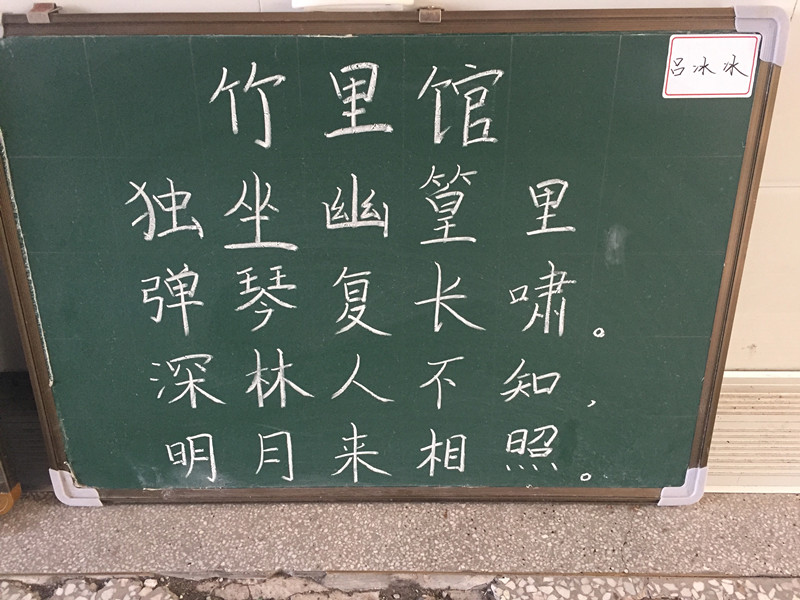 竹里馆
吕冰冰
独坐幽篁里
弹琴复长啸。
深林人不知,
明月来相照。